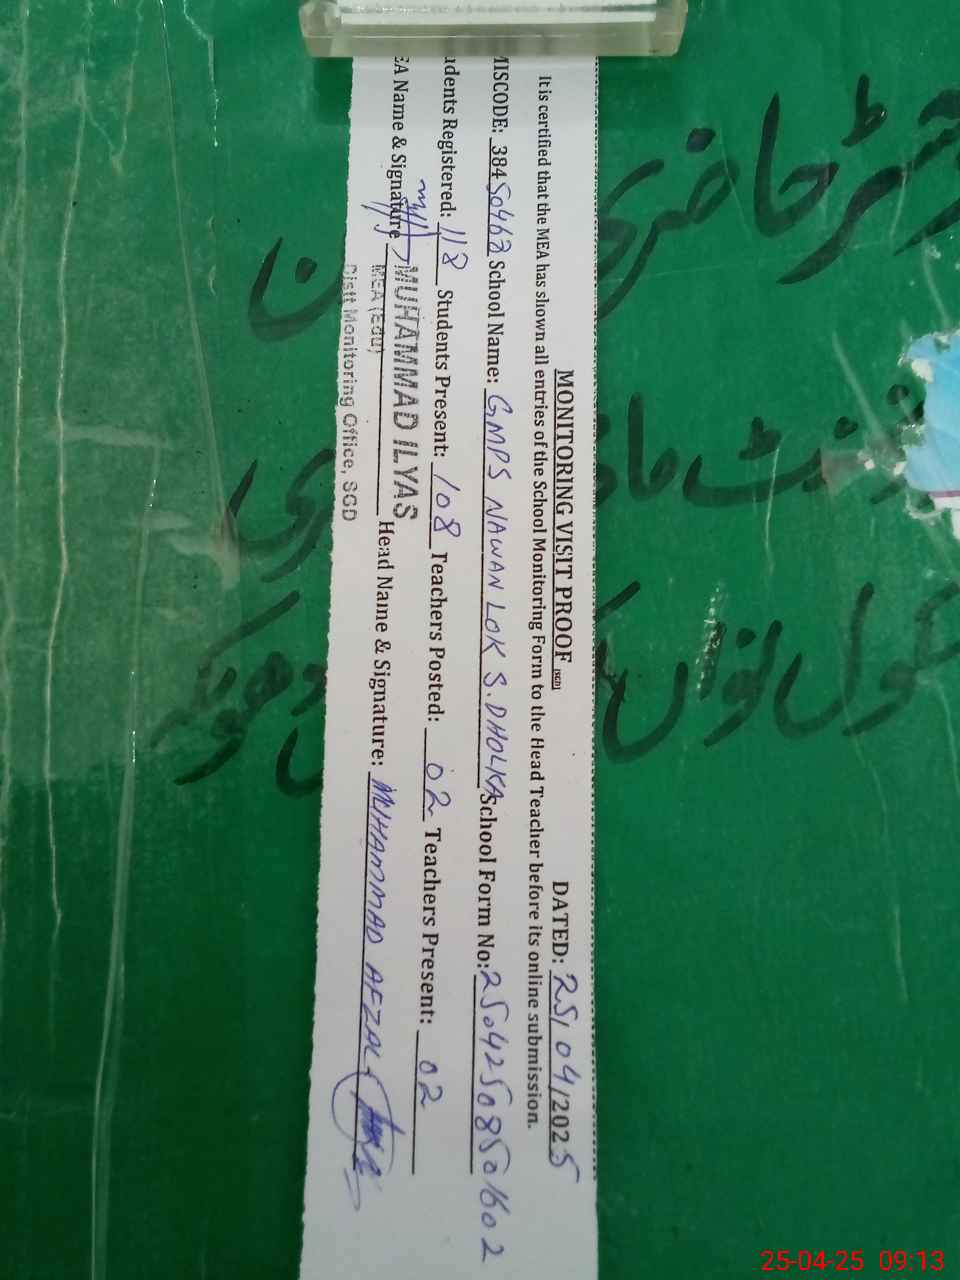 MONITORING VISIT PROOF [SGD] DATED: 25/04/2025
It is certified that the MEA has shown all entries of the School Monitoring Form to the Head Teacher before its online submission.
MISCODE: 38450462 School Name: GMPS NAWAN LOK S.DHOLKA School Form No: 2504250850 1602
udents Registered: 118 Students Present: 108 Teachers Posted: 02 Teachers Present: 02
EA Name & Signature MUHAMMAD ILYAS Head Name & Signature: MUHAMMAD AFZAL
MEA (Edu)
Distt Monitoring Office, SGD
25-04-25 09:13